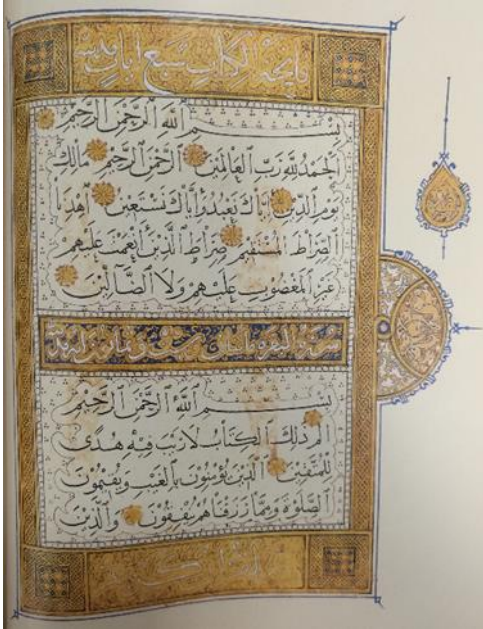 فاتحة الكتاب سبع ايات
بِسْمِ اللَّهِ الرَّحْمَٰنِ الرَّحِيمِ
اَلْحَمْدُ لِلَّهِ رَبِّ الْعَالَمِينَ الرَّحْمَٰنِ الرَّحِيمِ مَالِكِ
يَوْمِ الدِّينِ إِيَّاكَ نَعْبُدُ وَإِيَّاكَ نَسْتَعِينُ اِهْدِنَا
الصِّرَاطَ الْمُسْتَقِيمَ صِرَاطَ الَّذِينَ أَنْعَمْتَ عَلَيْهِمْ
غَيْرِ الْمَغْضُوبِ عَلَيْهِمْ وَلَا الضَّالِّينَ
سورة البقرة مائتان
بِسْمِ اللَّهِ الرَّحْمَٰنِ الرَّحِيمِ
الم ذَٰلِكَ الْكِتَابُ لَا رَيْبَ فِيهِ هُدًى
لِلْمُتَّقِينَ الَّذِينَ يُؤْمِنُونَ بِالْغَيْبِ وَيُقِيمُونَ
الصَّلَوٰةَ وَمِمَّا رَزَقْنَاهُمْ يُنْفِقُونَ وَالَّذِينَ